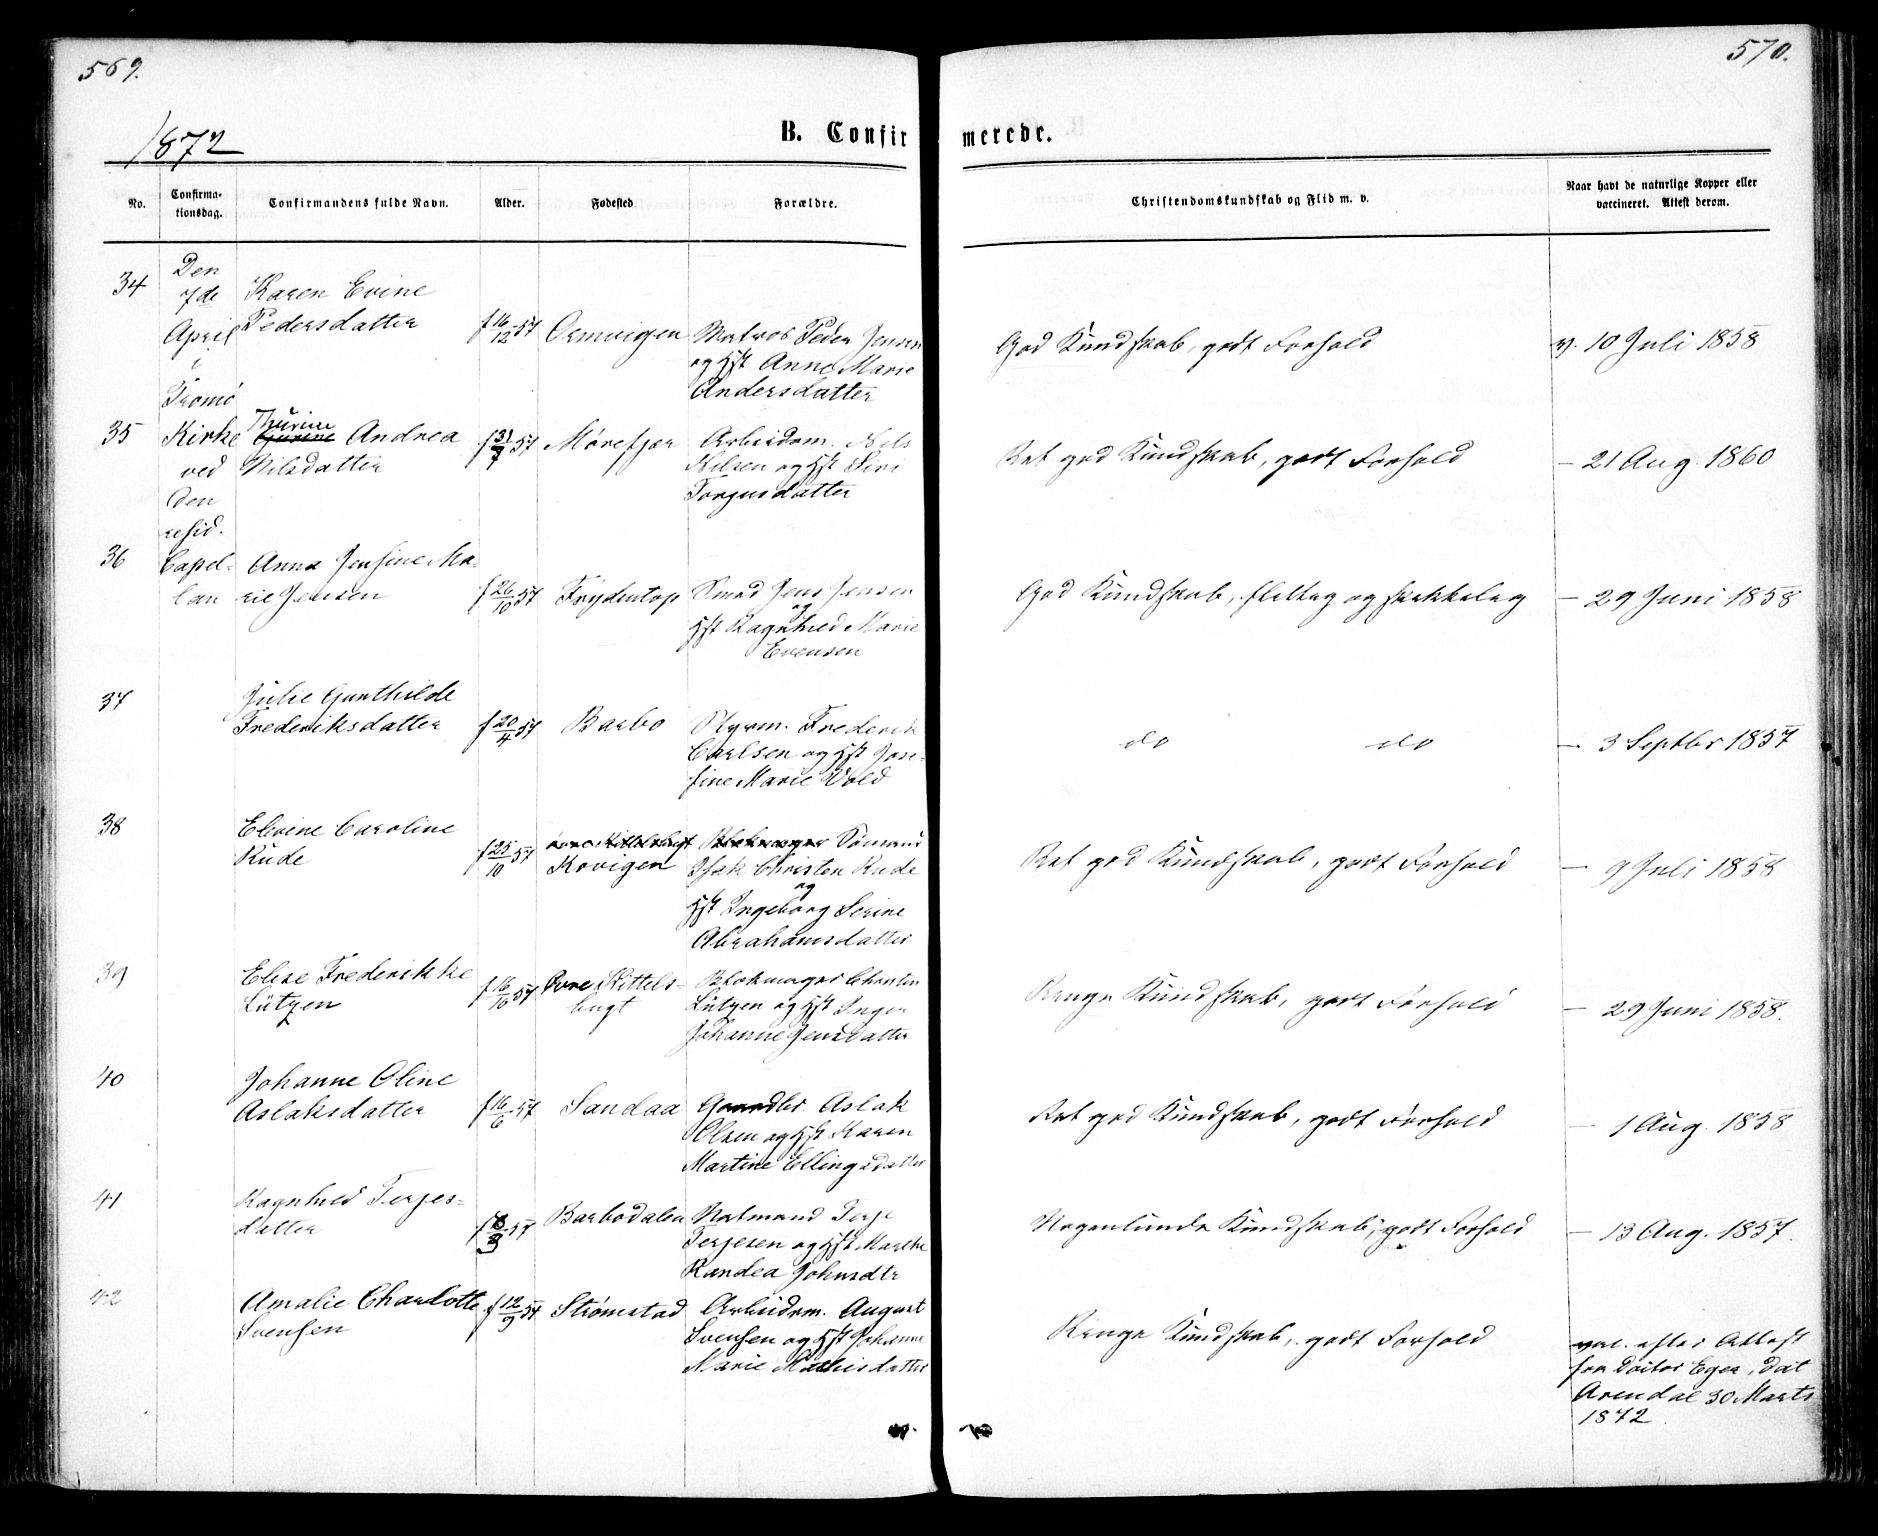 569.
570.
1872
B. Confirmerede.
No.
Confirma-
tionsdag.
Confirmandens fulde Navn.
Alder.
Fødested
Forældre.
Christendomskundskab og Flid m. v.
Naar havt de naturlige Kopper eller
vaccineret. Attest derom.
Den
7de
April
i
Tromø
Kirke
ved
den
resid.
Capel-
lan
34
Karen Evine
Pedersdatter
f 16/12 57
Ormvigen
Matros Peder Jensen
og Hst Anne Marie
Andersdatter
God Kundskab, godt Forhold
v. 10 Juli 1858
35
Thurine
Andrea
Nilsdatter
f 31/7 57
Mørefjær
Arbeidsm. Nils
Nilsen og Hst Siri
Torgusdatter
Ret god Kundskab, godt Forhold
– 21 Aug. 1860
36
Anna Jensine Ma-
rie Jensen
f 26/10 57
Frydentop
Smed Jens Jensen
og
Hst Ragnhild Marie
Evensen
God Kundskab, flittig og skikkelig
– 29 Juni 1858
37
Julie Gunthilde
Frederiksdatter
f 20/4 57
Barbo
Styrm. Frederik
Carlsen og Hst Jose-
fine Marie Vold
do do
– 3 Septbr 1857
38
Elvine Caroline
Rude
f 25/10 57
Kovigen
Blokmager Sømand
Isak Christen Rude
og
Hst Ingeborg Serine
Abrahamsdatter
Ret god Kundskab, godt Forhold
– 9 Juli 1858
39
Elise Frederikke
Lützen
f 16/10 57
Øvre Kittels-
bugt
Blokmager Christen
Lützen og Hst Inger
Johanne Jensdatter
Ringe Kundskab, godt Forhold
– 29 Juni 1858.
40
Johanne Oline
Aslaksdatter
f 16/6 57
Sandaa
Gaardbr. Aslak
Olsen og Hst Karen
Martine Ellingsdatter
Ret god Kundskab, godt Forhold
– 1 Aug. 1858
41
Ragnhild Terjes-
datter
f 8/3 57
Barbodalen
Terje
Terjesen og Hst Marthe
Randea Johnsdtr
Nogenlunde Kundskab, godt Forhold
– 13 Aug. 1857.
42
Amalie Charlotte
Svensen
f 12/9 57
Strømstad
Arbeidsm. August
Svensen og Hst Johanne
Marie Mathisdatter
Ringe Kundskab, godt Forhold
vac. efter Attest
fra Doctor Eger, dat
Arendal 30 Marts
1872.